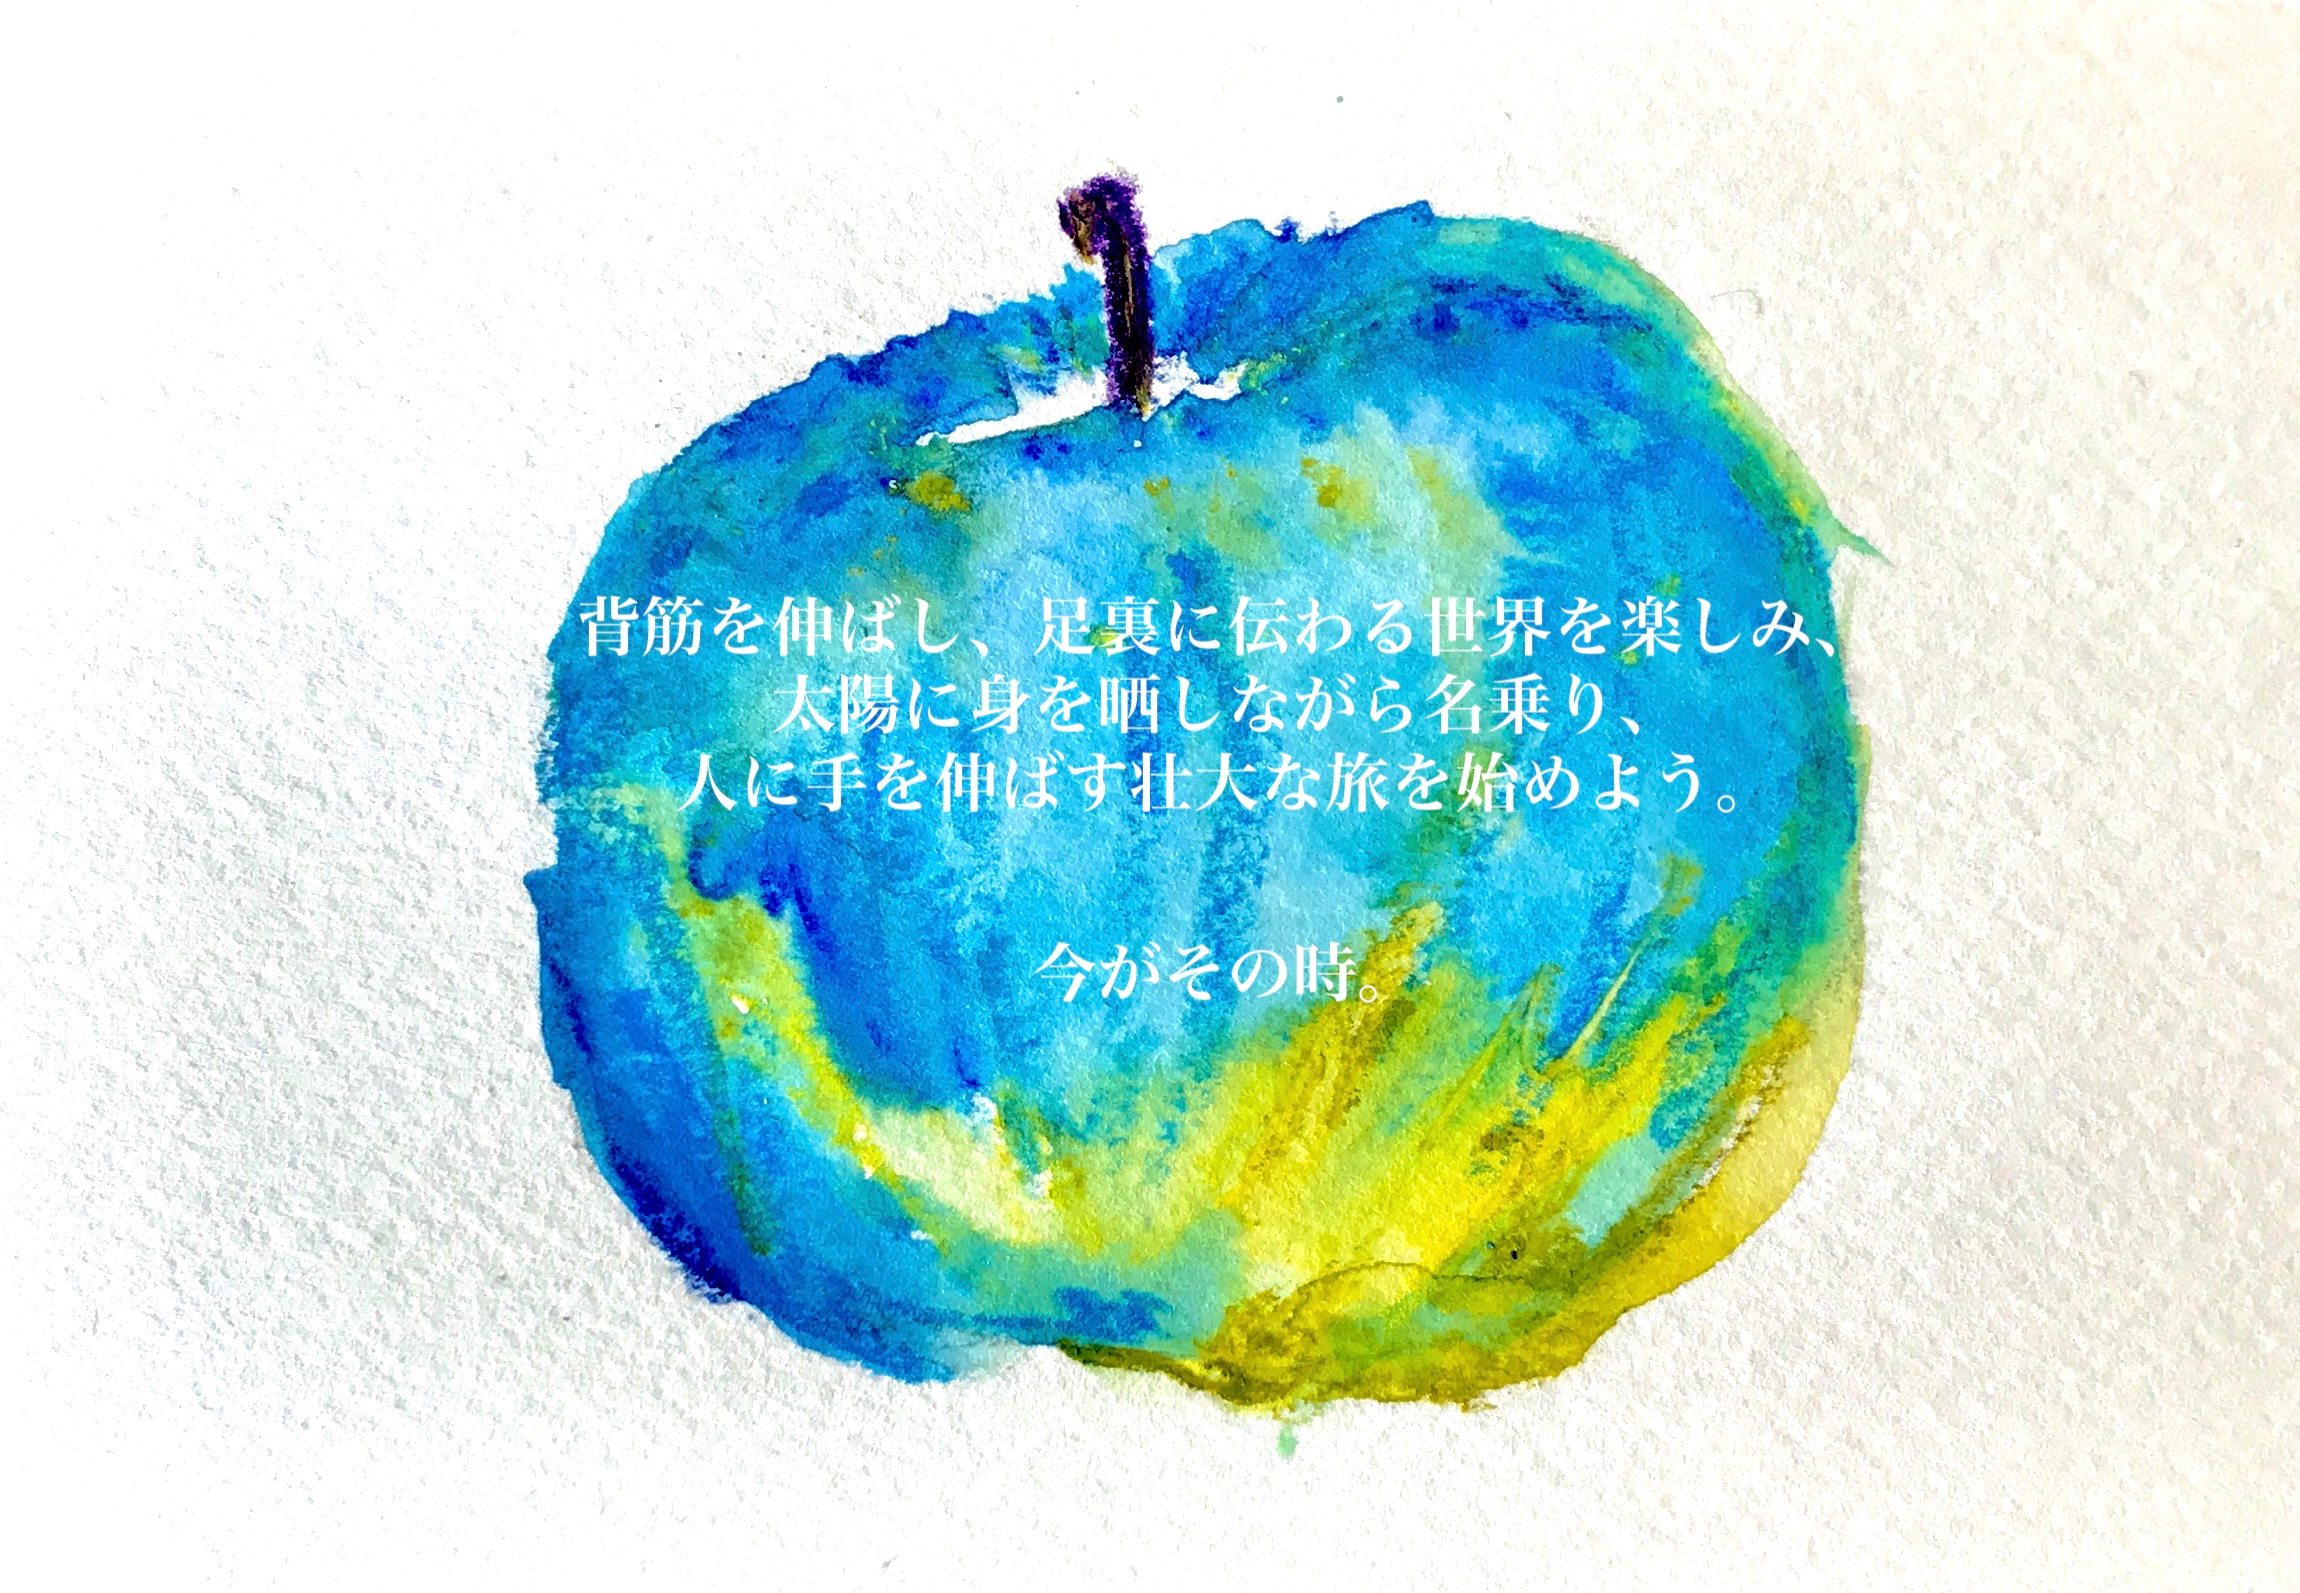 背筋を伸ばし、足裏に伝わる世界を楽しみ、
太陽に身を晒しながら名乗り、
人に手を伸ばす壮大な旅を始めよう。
今がその時。